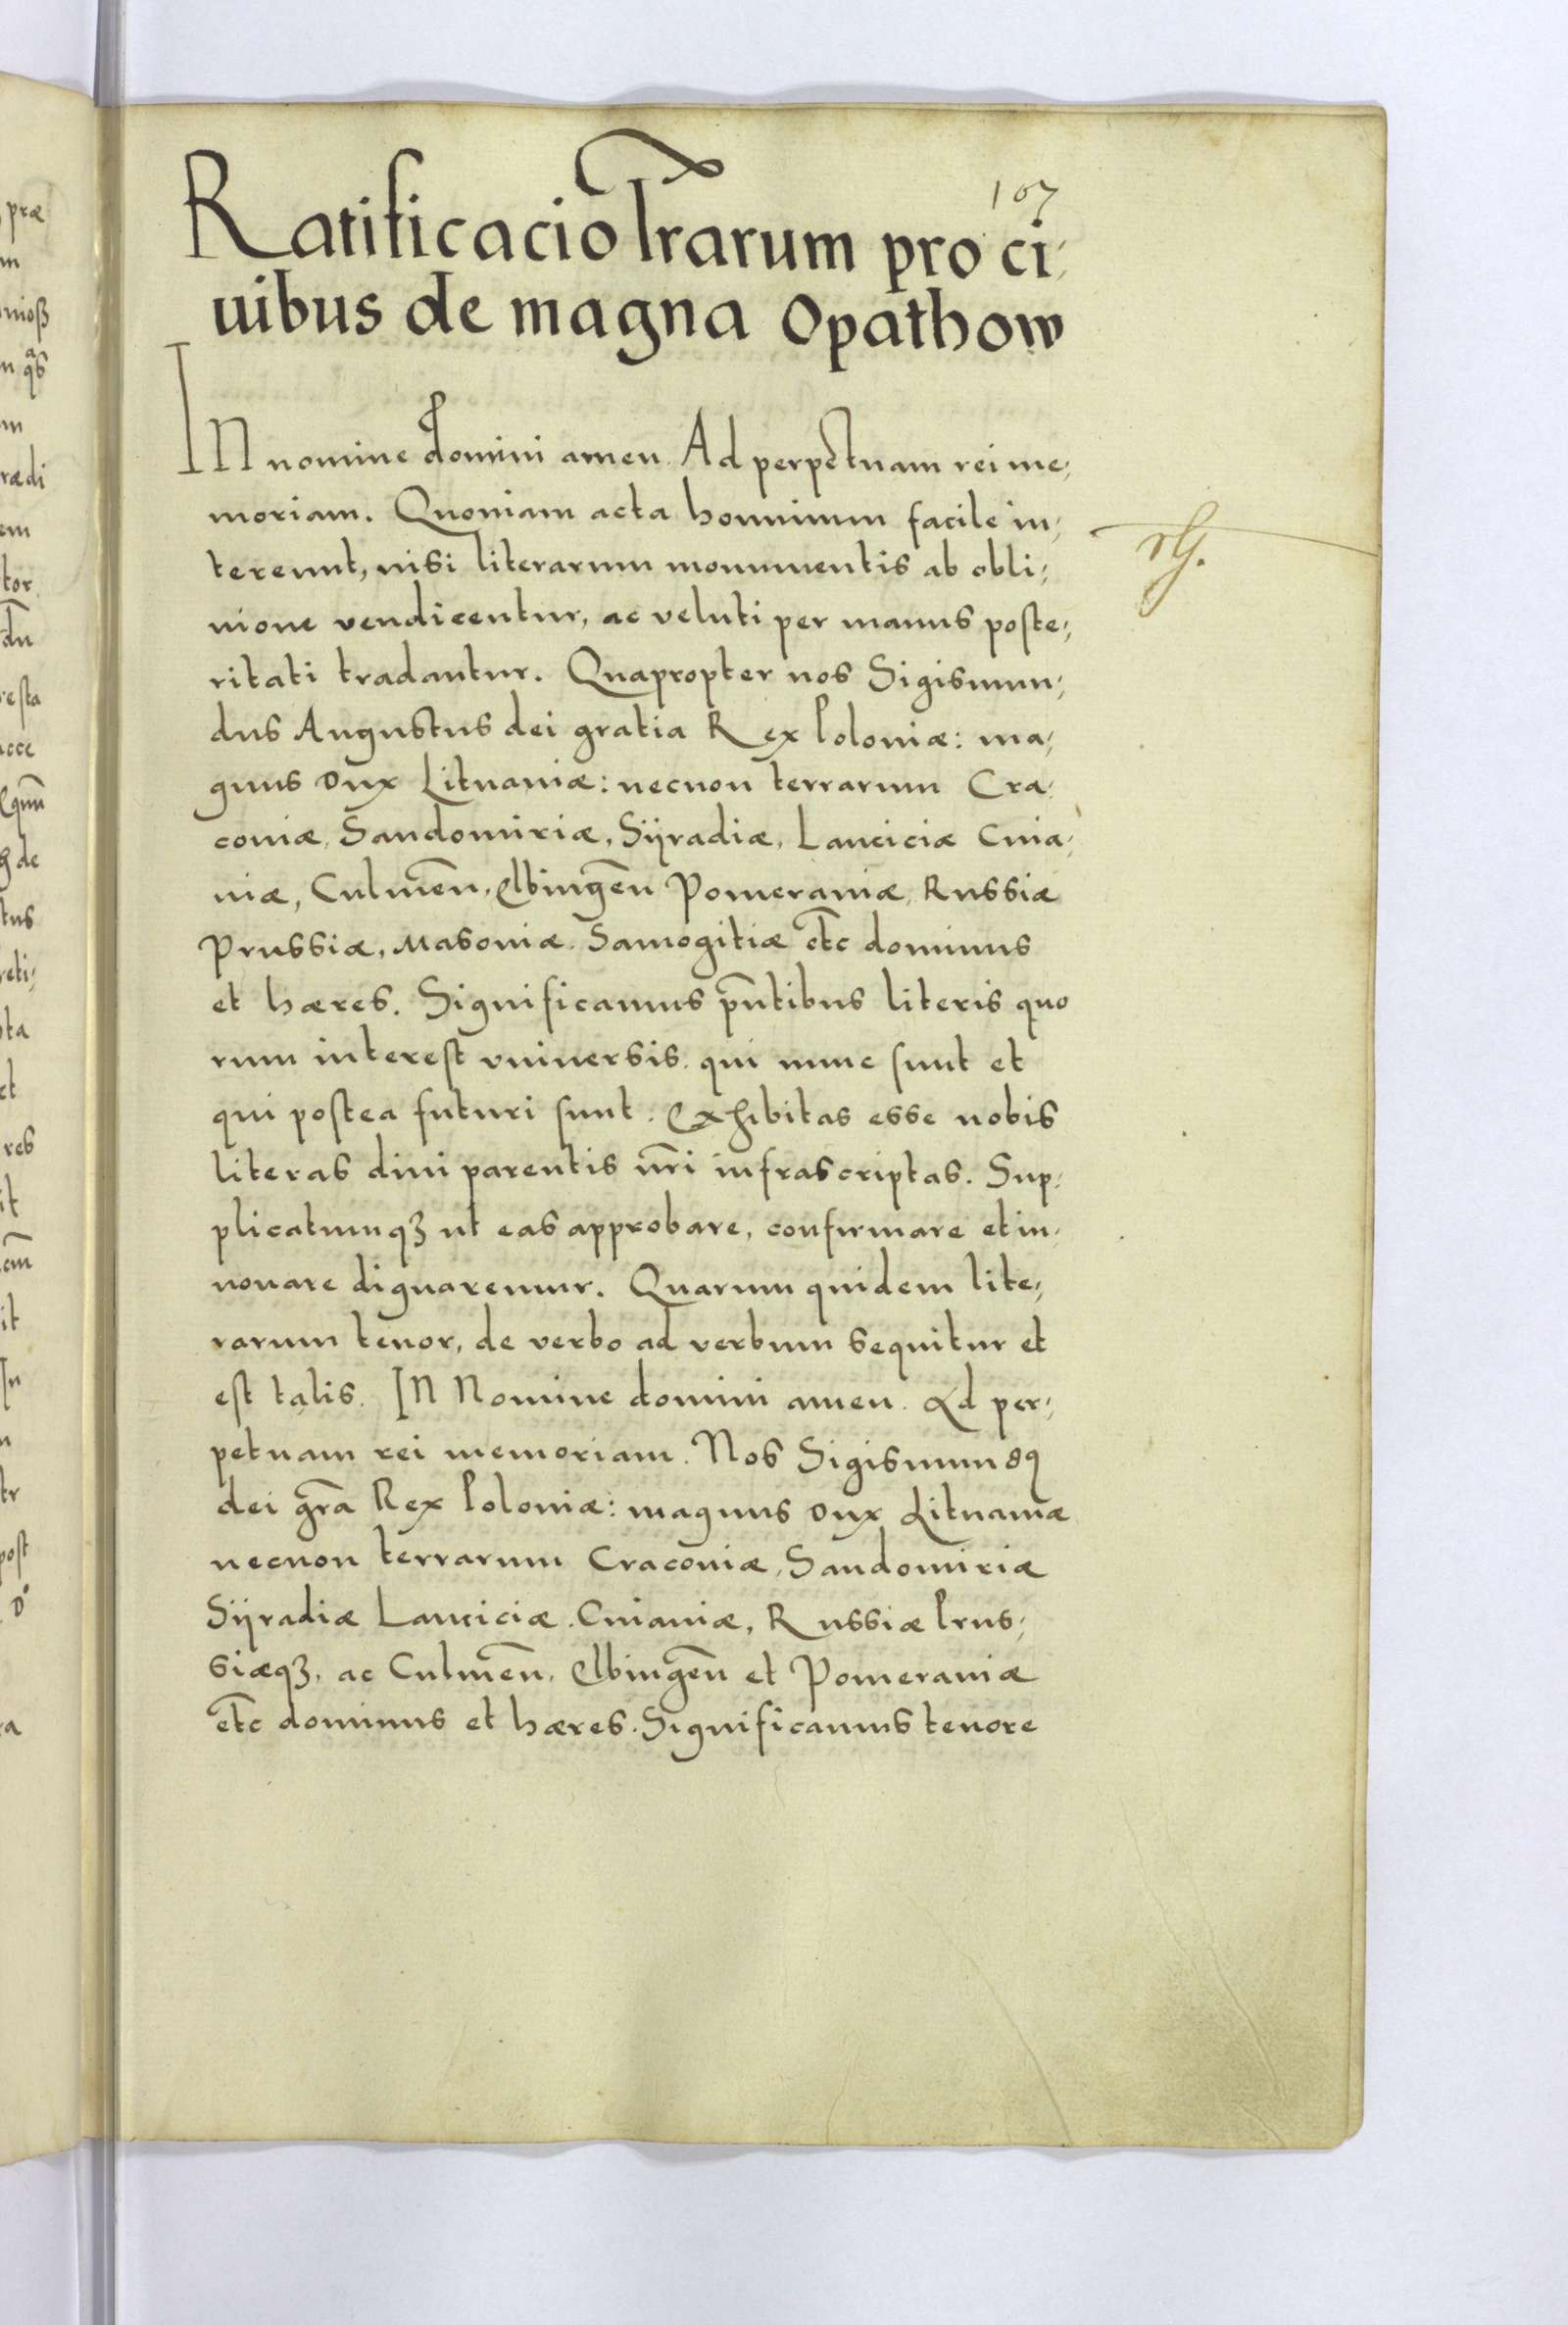 107
Ratificacio lr̄arum pro ci,
uibus de magna Opathow
IN nomine domini amen. Ad perpetuam rei me,
moriam. Quoniam acta hominum facile in,
tereunt, nisi literarum monumentis ab obli,
uione vendicentur, ac veluti per manus poste,
ritati tradantur. Quapropter nos Sigismun,
dus Augustus dei gratia Rex Poloniæ: ma,
gnus Dux Lituaniæ: necnon terrarum Cra,
couiæ, Sandomiriæ, Sÿradiæ, Lanciciæ Cuia,
uiæ, Culmēn, Elbingēn Pomeraniæ, Russiæ
Prussiæ, Masouiæ. Samogitiæ etc̄ dominus
et hæres. Significamus pn̄tibus literis quo
rum interest vniuersis. qui nunc sunt et
qui postea futuri sunt. Exhibitas esse nobis
literas diui parentis nr̄i infrascriptas. Sup,
plicatumqꝫ ut eas approbare, confirmare et in,
nouare dignaremur. Quarum quidem lite,
rarum tenor, de verbo ad verbum sequitur et
est talis. IN Nomine domini amen. Ad per,
petuam rei memoriam. Nos Sigismundꝯ
dei gr̄a Rex Poloniæ: magnus Dux Lituaniæ
necnon terrarum Cracouiæ, Sandomiriæ
Sÿradiæ Lanciciæ. Cuiauiæ, Russiæ Prus,
siæqꝫ, ac Culmēn, Elbingēn et Pomeraniæ
etc̄ dominus et hæres. Significamus tenore